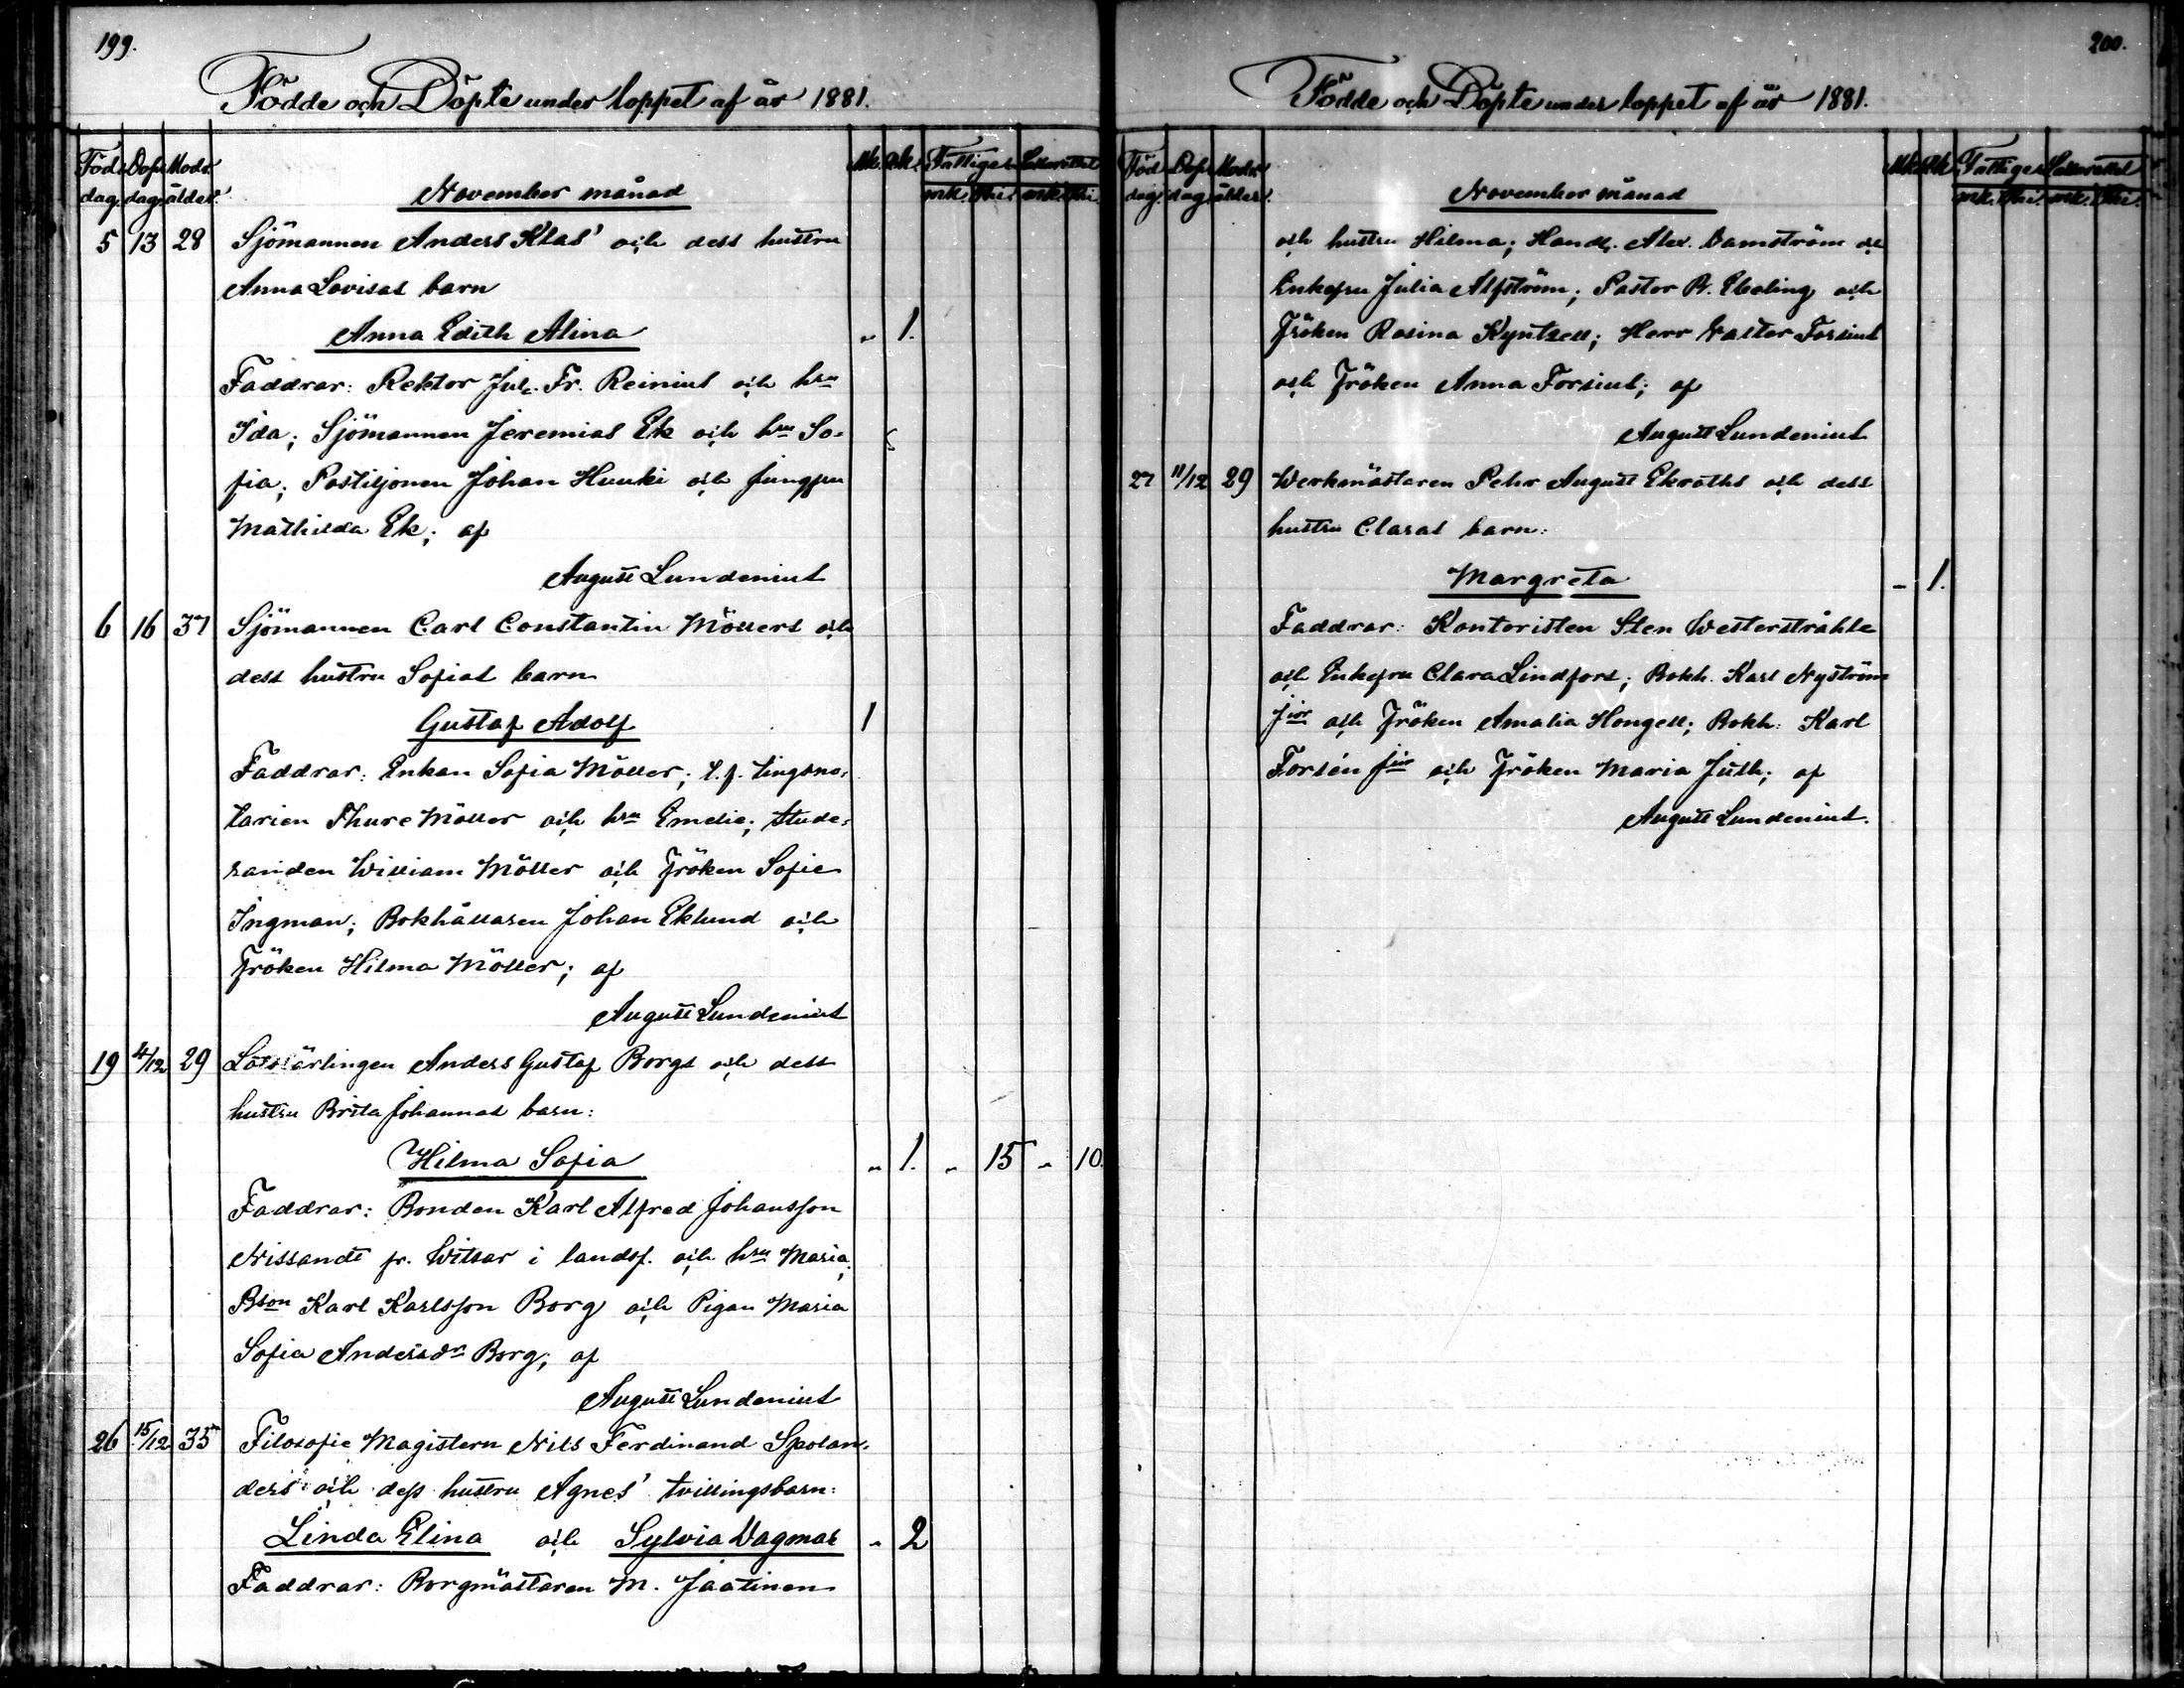 199.
Födde och Döpte under loppet af år 1881.
Föd. Dop. Modr. Mk. Mk. Fattiges
dag. dag. ålder. November månad mk. Pni. mk. Pni.
5 13 28 Sjömannen Anders Klas' och dess hustru
Anna Lovisas barn
Anna Edith Alina „ 1.
Faddrar: Rektor Jul. Fr. Reinius och hru
Ida; Sjömannen Jeremias Ek och hru So-
fia; Postiljonen Johan Huuki och jungfru
Mathilda Ek; af
August Lundenius
6 16 37 Sjömannen Carl Constantin Möllers och
dess hustru Sofias barn
Gustaf Adolf 1
Faddrar: Enkan Sofia Möller; t.f. tingsno-
tarien Thure Möller och hru Emelie; stude-
randen William Möller och Fröken Sofie
Ingman; Bokhållaren Johan Eklund och
Fröken Hilma Möller; af
August Lundenius
19 4/12 29 Lotslärlingen Anders Gustaf Borgs och dess
hustru Brita Johannas barn:
Hilma Sofia „ 1. „ 15 „ 10.
Faddrar: Bonden Karl Alfred Johansson
Nissandt fr. Witsar i landsf. och hru Maria;
Bson Karl Karlsson Borg och Pigan Maria
Sofia Andersdr Borg; af
August Lundenius
26 15/12 35 Filosofie Magistern Nils Ferdinand Spolan-
ders och dess hustru Agnes' tvillingsbarn:
Linda Elina och Sylvia Dagmar „ 2
Faddrar: Borgmästaren M. Jaatinen
200.
Födde och Döpte under loppet af år 1881.
Föd. Dop. Modr. Mk. Mk. Fattiges
dag. dag. ålder. November månad mk. Pni. mk. Pni.
och hustru Hilma; Handl. Alex. Damström och
Enkefru Julia Alfström; Pastor R. Ebeling och
Fröken Rosina Kyntzell; Herr Valter Forsius
och Fröken Anna Forsius; af
August Lundenius
27 11/12 29 Werkmästaren Pehr August Ekroths och dess
hustru Claras barn:
Margreta „ 1.
Faddrar: Kontoristen Sten Westerstråhle
och Enkefru Clara Lindfors; Bokh. Karl Nyström
jior och Fröken Amalia Hongell; Bokh. Karl
Forsén jior och Fröken Maria Juth; af
August Lundenius.